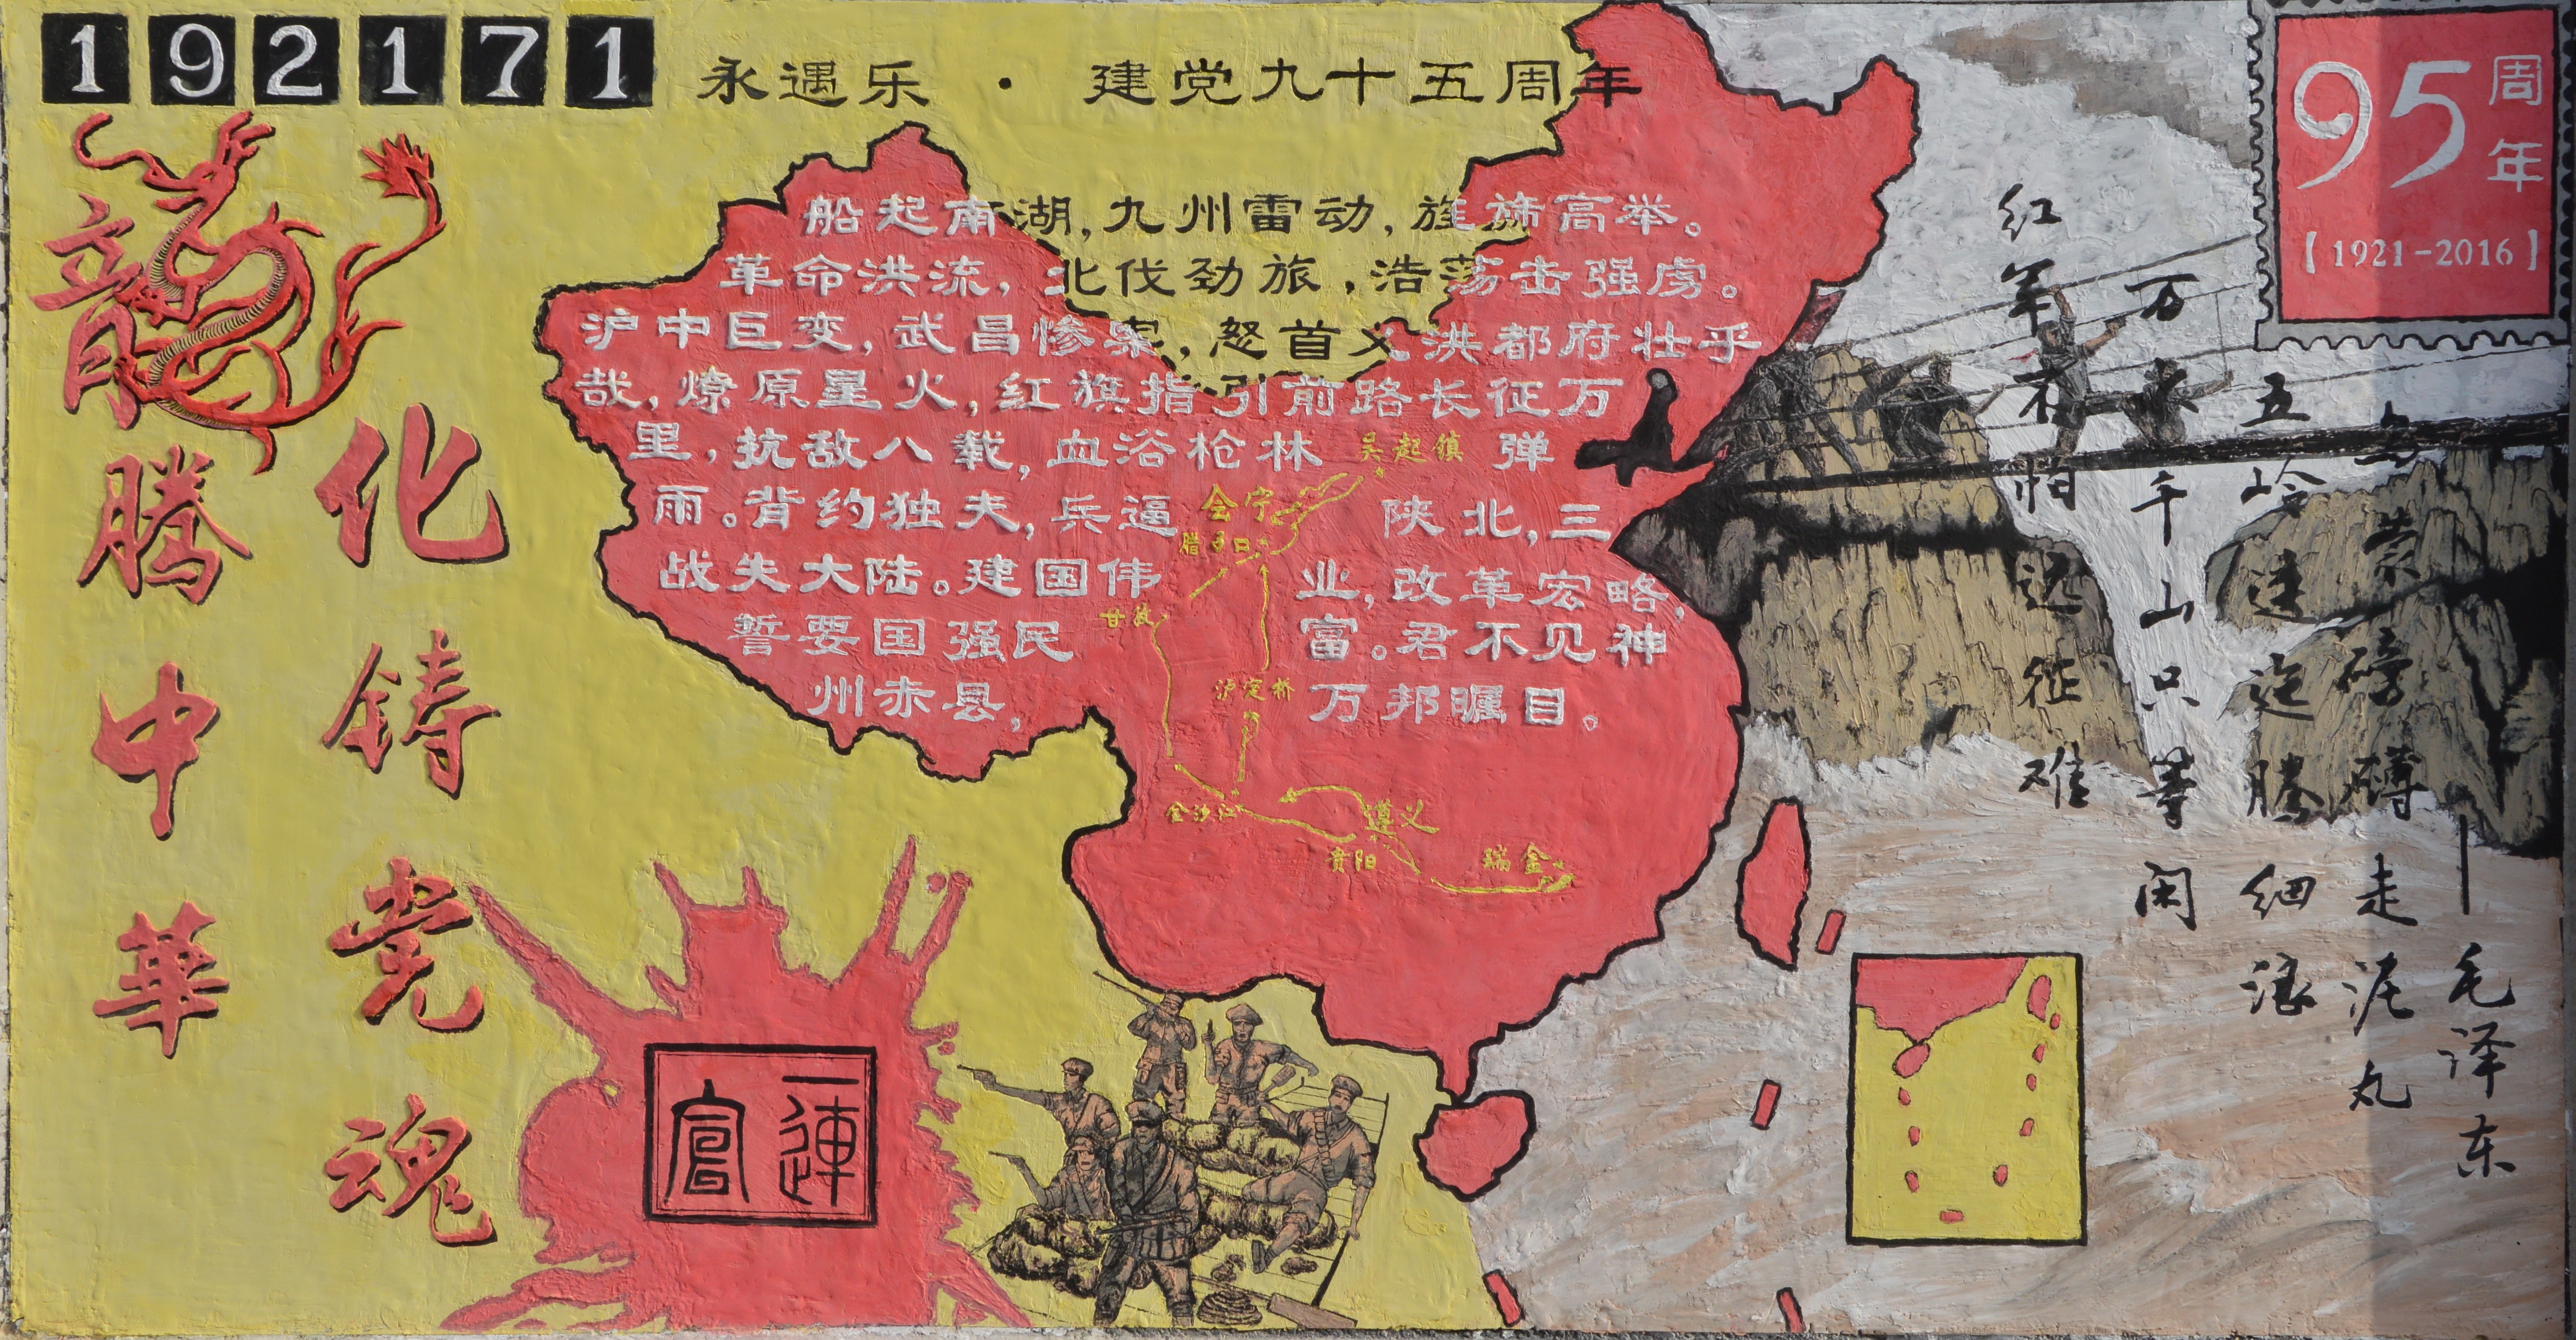 192171
永遇乐 · 建党九十五周年
95周年
【1921-2016】
龍腾中華
化铸党魂
船起南湖,九州雷动,旌旆高举。
革命洪流,北伐劲旅,浩荡击强虏。
沪中巨变,武昌惨案,怒首义洪都府壮乎
哉,燎原星火,红旗指引前路长征万
里,抗敌八载,血浴枪林弹
雨。背约独夫,兵逼陕北,三
战失大陆。建国伟业,改革宏略,
誓要国强民富。君不见神
州赤县,万邦瞩目。
吴起镇
会宁
腊子口
甘孜
泸定桥
金沙江
遵义
贵阳
瑞金
红军不怕远征难
万水千山只等闲
五岭逶迤腾细浪
乌蒙磅礴走泥丸
——毛泽东
一连